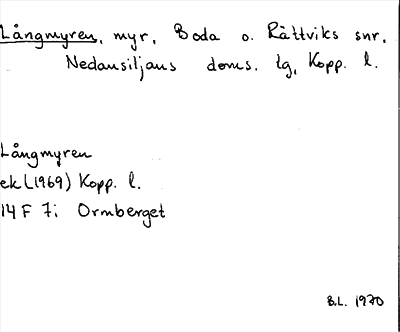 Långmyren, myr, Boda o. Rättviks snr,
Nedansiljans doms. tg, Kopp. l.
Långmyren
ek (1969) Kopp. l.
14 F 7i Ormberget
B.L. 1970